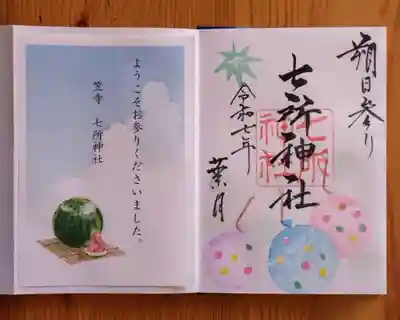 朔日参り
七所神社
七所神社
令和七年
葉月
ようこそお参りくださいました。
笠寺 七所神社